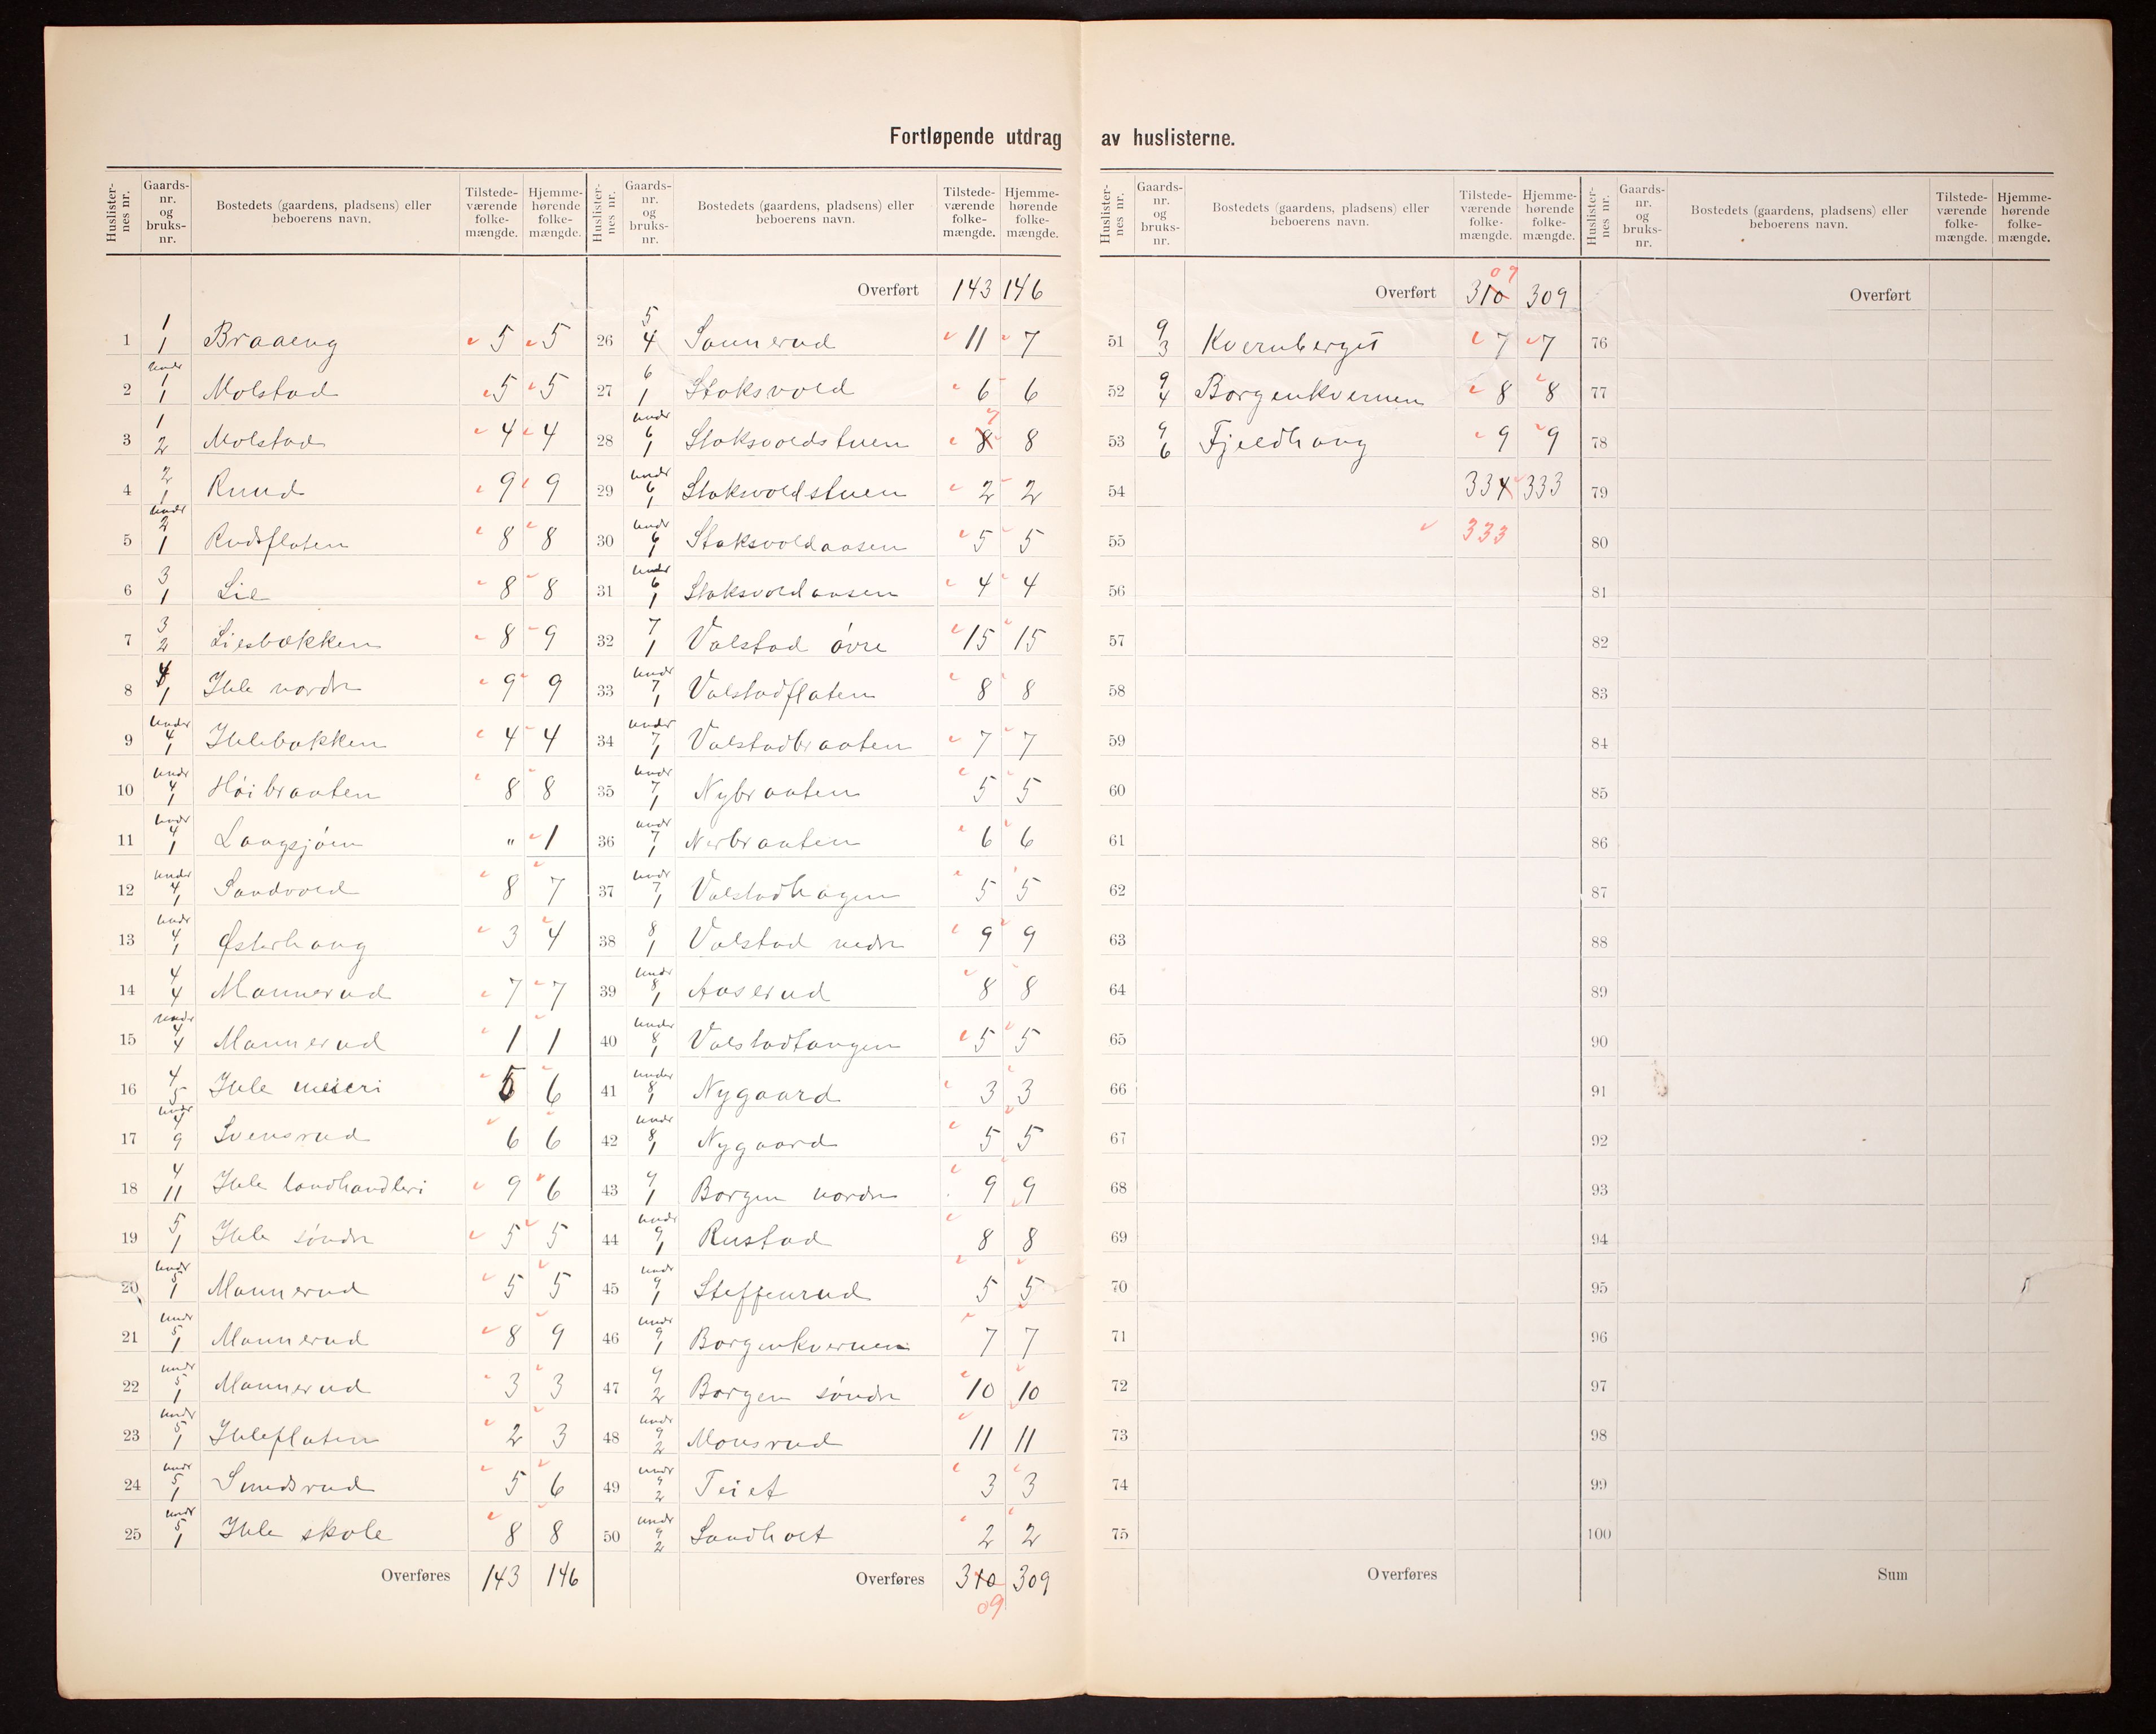 Fortløpende utdrag av huslisterne.
Huslisternes nr. Gaards-nr. og bruks-nr. Bostedets (gaardens, pladsens) eller beboerens navn. Tilstede-værende folke-mængde. Hjemme-hørende folke-mængde.
1 1 1 Braaeng 5 5
2 under 1 1 Molstad 5 5
3 1 2 Molstad 4 4
4 2 1 Ruud 9 9
5 under 2 1 Rudsflaten 8 8
6 3 1 Lie 8 8
7 3 2 Liesbakken 8 9
8 4 1 Ihle nordre 9 9
9 under 4 1 Ihlebakken 4 4
10 under 4 1 Höibraaten 8 8
11 under 4 1 Langsjöen " 1
12 under 4 1 Sandvold 8 7
13 under 4 1 Østerhaug 3 4
14 4 4 Mannerud 7 7
15 under 4 4 Mannerud 1 1
16 4 5 Ihle meieri 5 6
17 under 4 9 Svensrud 6 6
18 4 11 Ihle landhandleri 9 6
19 5 1 Ihle söndre 5 5
20 under 5 1 Mannerud 5 5
21 under 5 1 Mannerud 8 9
22 under 5 1 Mannerud 3 3
23 under 5 1 Ihleflaten 2 3
24 under 5 1 Smedsrud 5 6
25 under 5 1 Ihle skole 8 8
Overføres 143 146
Huslisternes nr. Gaards-nr. og bruks-nr. Bostedets (gaardens, pladsens) eller beboerens navn. Tilstede-værende folke-mængde. Hjemme-hørende folke-mængde.
Overført 143 146
26 5 4 Sannerud 11 7
27 6 1 Stoksvold 6 6
28 under 6 1 Stoksvoldstuen 8 7 8
29 under 6 1 Stoksvoldstuen 2 2
30 under 6 1 Stoksvoldaasen 5 5
31 under 6 1 Stoksvoldaasen 4 4
32 7 1 Valstad övre 15 15
33 under 7 1 Valstadflaten 8 8
34 under 7 1 Valstadbraaten 7 7
35 under 7 1 Nybraaten 5 5
36 under 7 1 Nerbraaten 6 6
37 under 7 1 Valstadhagen 5 5
38 8 1 Valstad nedre 9 9
39 under 8 1 Aaserud 8 8
40 under 8 1 Valstadtangen 5 5
41 under 8 1 Nygaard 3 3
42 under 8 1 Nygaard 5 5
43 9 1 Borgen nordre 9 9
44 under 9 1 Rustad 8 8
45 under 9 1 Steffenrud 5 5
46 under 9 1 Borgenkvernen 7 7
47 9 2 Borgen söndre 10 10
48 under 9 2 Monsrud 11 11
49 under 9 2 Teiet 3 3
50 under 9 2 Sandholt 2 2
Overføres 310 09 309
Huslisternes nr. Gaards-nr. og bruks-nr. Bostedets (gaardens, pladsens) eller beboerens navn. Tilstede-værende folke-mængde. Hjemme-hørende folke-mængde.
Overført 310 09 309
51 9 3 Kvernberget 7 7
52 9 4 Borgenkvernen 8 8
53 9 6 Fjeldhaug 9 9
54 334 333
55 333
56
57
58
59
60
61
62
63
64
65
66
67
68
69
70
71
72
73
74
75
Overføres
Huslisternes nr. Gaards-nr. og bruks-nr. Bostedets (gaardens, pladsens) eller beboerens navn. Tilstede-værende folke-mængde. Hjemme-hørende folke-mængde.
Overført
76
77
78
79
80
81
82
83
84
85
86
87
88
89
90
91
92
93
94
95
96
97
98
99
100
Sum